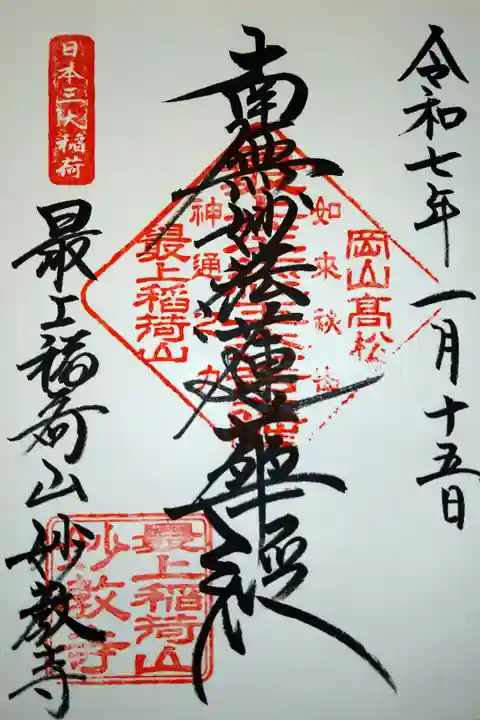 令和七年一月十五日
南無妙法蓮華経
岡山高松
如来秘密
神通之力
最上稲荷山
日本三大稲荷
最上稲荷山妙教寺
最上稲荷山
妙教寺